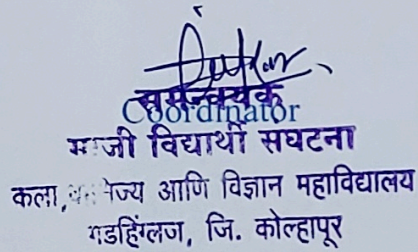 समन्वयक
Coordinator
माजी विद्यार्थी संघटना
कला, वाणिज्य आणि विज्ञान महाविद्यालय
गडहिंग्लज, जि. कोल्हापूर